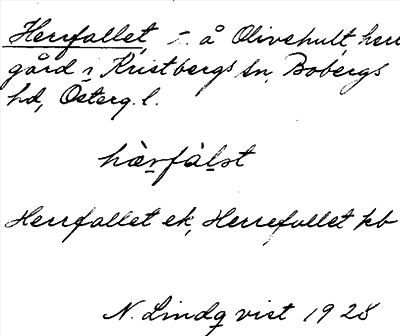 Herrfallet, t. å Olivehult, herr
gård i Kristbergs sn, Bobergs
hd, Österg. l.
hærfal̄st
Herrfallet ek, Herrefallet kb
N. Lindqvist 1928